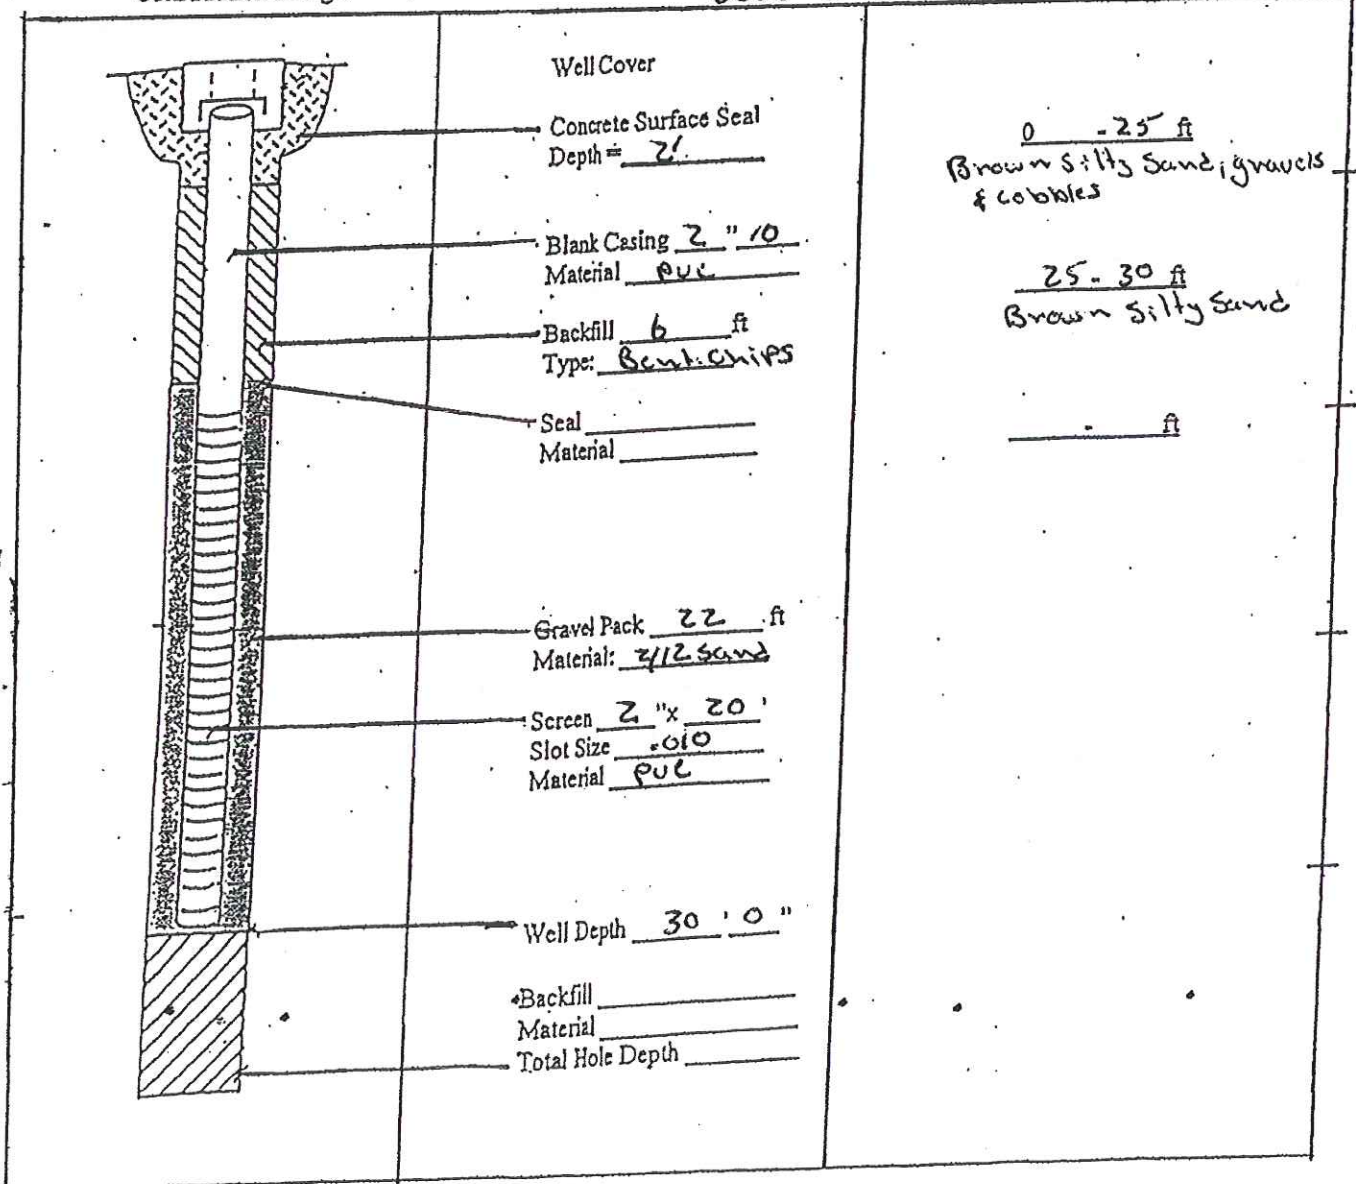 Well Cover
Concrete Surface Seal
Depth = 2'
Blank Casing 2 " 10
Material PVC
Backfill 6 ft
Type: Bent. Chips
Seal
Material
Gravel Pack 22 ft
Material: 2/12 Sand
Screen 2 "x 20 '
Slot Size .010
Material PVC
Well Depth 30 ' 0 "
Backfill
Material
Total Hole Depth
0 - 25 ft
Brown Silty Sand, gravels
& cobbles
25 - 30 ft
Brown Silty Sand
- ft